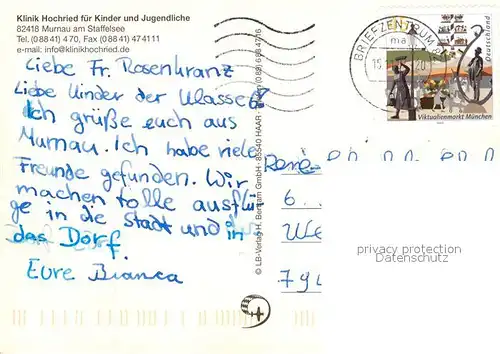 Klinik Hochried für Kinder und Jugendliche
82418 Murnau am Staffelsee
Tel. (088 41) 470, Fax (088 41) 474111
e-mail: info@klinikhochried.de
Liebe Fr. Rosenkranz
Liebe Kinder der Klasse
Ich grüße euch aus
Murnau. Ich habe viele
Freunde gefunden. Wir
machen tolle ausflü
ge in die Stadt und in
das Dorf.
Eure Bianca
© LB-Verlag H. Bertram GmbH · 85540 HAAR
BRIEFZENTRUM
ma
Deutschland
Viktualienmarkt München
René
6.
We
794
privacy protection
Datenschutz